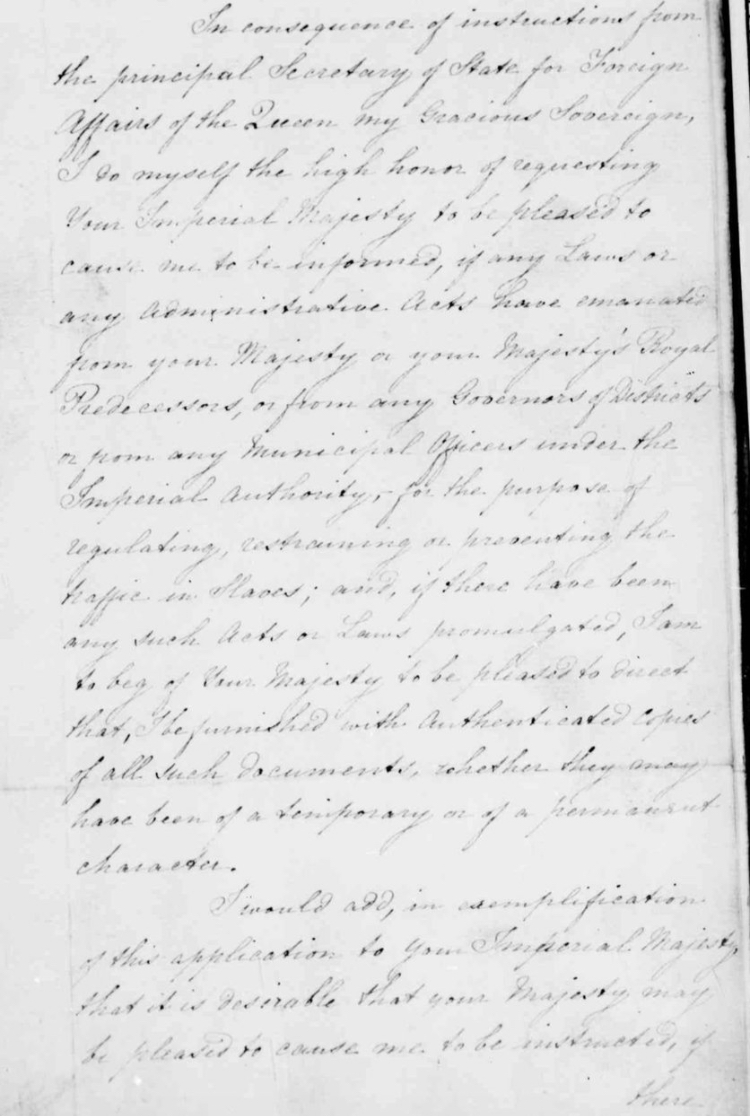 In consequence of instructions from
the principal Secretary of State for Foreign
Affairs of the Queen my Gracious Sovereign,
I do myself the high honor of requesting
Your Imperial Majesty to be pleased to
cause me to be informed, if any Laws or
any Administrative Acts have emanated
from your Majesty or your Majesty's Royal
Predecessors, or from any Governors of Districts
or from any Municipal Officers under the
Imperial Authority, for the purpose of
regulating, restraining or preventing the
traffic in Slaves; and, if there have been
any such Acts or Laws promulgated, I am
to beg of Your Majesty to be pleased to direct
that, I be furnished with Authenticated copies
of all such documents, whether they may
have been of a temporary or of a permanent
character.
I would add, in exemplification
of this application to your Imperial Majesty,
that it is desirable that your Majesty may
be pleased to cause me to be instructed, if
there